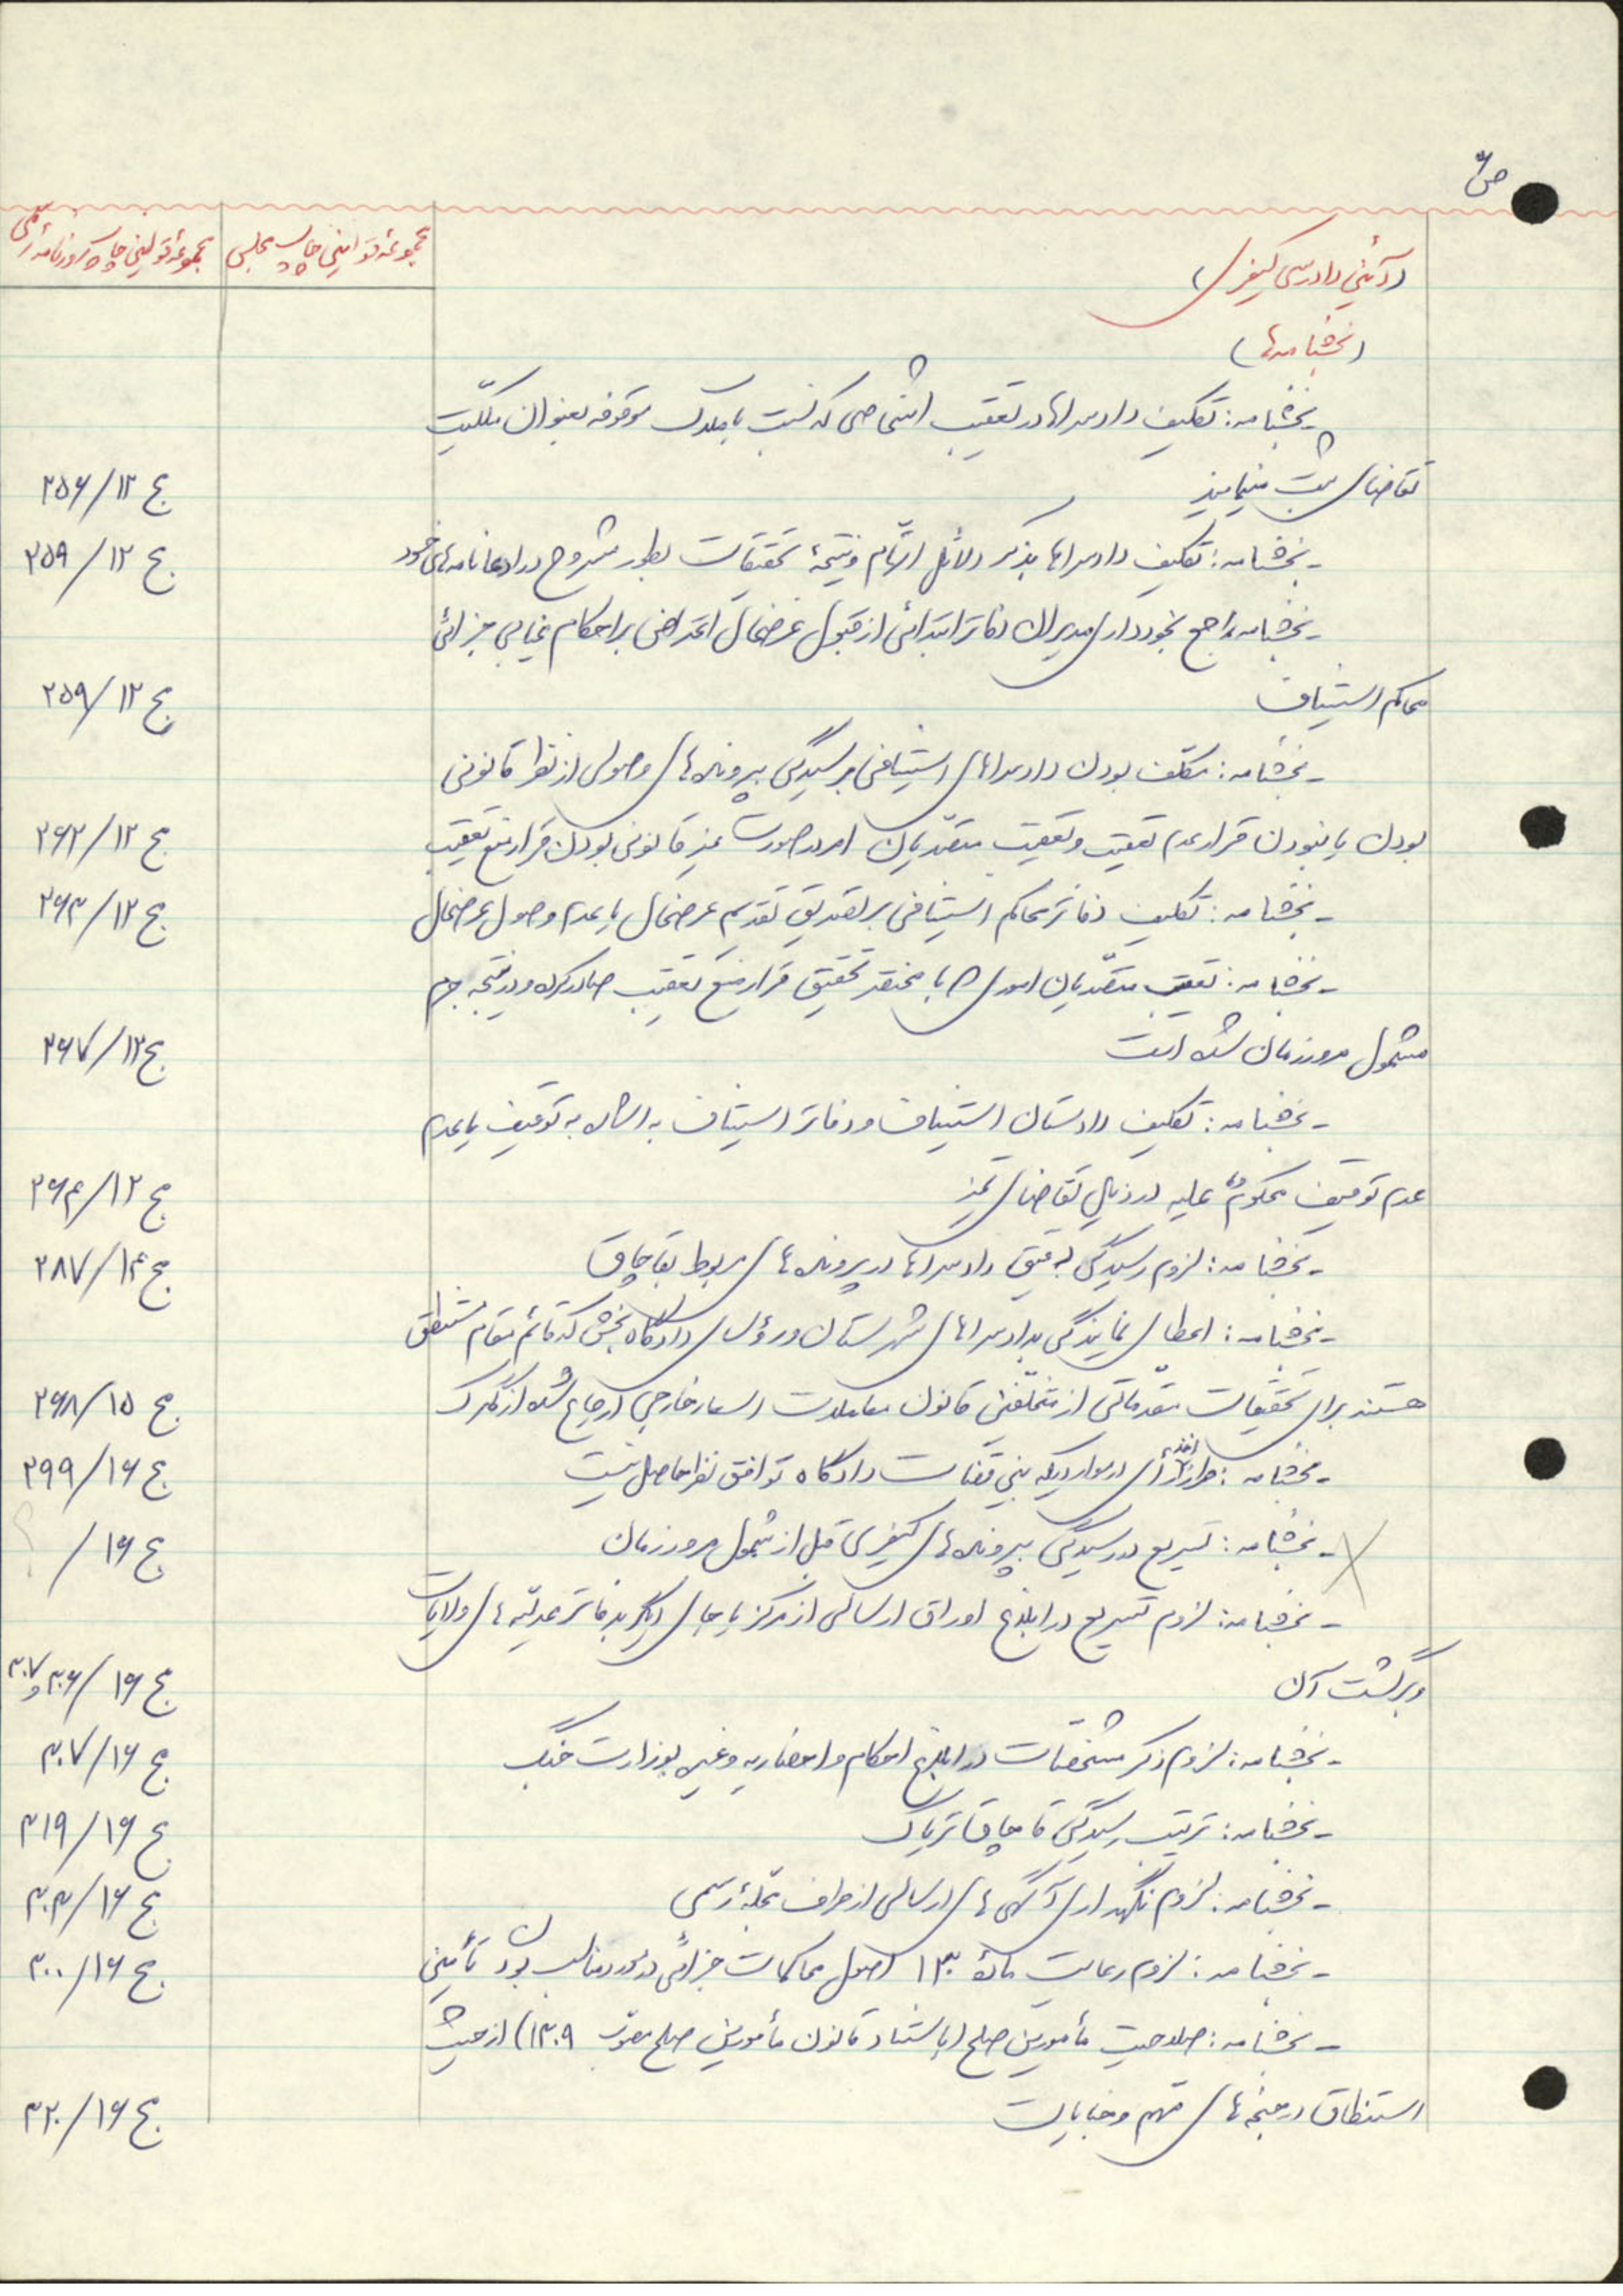 ص۶
مجموعه قوانین چاپ مجلس
مجموعه قوانین چاپ روزنامه رسمی
(آئین دادرسی کیفری)
(بخشنامه‌ها)
بخشنامه: تکلیف دادسراها در تعقیب اشخاصی که نسبت باملاک موقوفه بعنوان ملکیت
تقاضای ثبت مینمایند ج ۱۲/۲۵۶
- بخشنامه: تکلیف دادسراها بذکر دلائل اتهام و نتیجهٔ تحقیقات بطور مشروح در ادعانامه‌های خود ج ۱۲/۲۵۹
- بخشنامه راجع بخودداری مدیران دفاتر ابتدائی از قبول عرضحال اعتراض بر احکام غیابی جزائی
محاکم استیناف ج ۱۲/۲۵۹
- بخشنامه: مکلف بودن دادسراهای استینافی برسیدگی پرونده‌های وصولی از نظر قانونی
بودن یا نبودن قرار عدم تعقیب و تعقیب متصدیان امر در صورت غیر قانونی بودن قرار منع تعقیب ج ۱۲/۲۶۲
- بخشنامه: تکلیف دفاتر محاکم استینافی بر تصدیق تقدیم عرضحال یا عدم وصول عرضحال ج ۱۲/۲۶۳
- بخشنامه: تعقیب متصدیان اموری که با مختصر تحقیق قرار منع تعقیب صادر کرده و در نتیجه جرم
مشمول مرور زمان شده است ج ۱۲/۲۶۷
- بخشنامه: تکلیف دادستان استیناف و دفاتر استیناف به اشاره به توقیف یا عدم
عدم توقیف محکومٌ علیه در ذیل تقاضای تمیز ج ۱۲/۲۶۴
- بخشنامه: لزوم رسیدگی دقیق دادسراها در پرونده‌های مربوط بقاچاق ج ۱۴/۲۸۷
- بخشنامه: اعطای نمایندگی بدادسراهای شهرستان و رؤسای دادگاه بخش که قائم مقام مستنطق
هستند برای تحقیقات مقدماتی از متخلفین قانون معاملات اسعار خارجی ارجاع شده از گمرک ج ۱۵/۲۶۸
- بخشنامه: طرز اخذ رأی در مواردیکه بین قضات دادگاه توافق نظر حاصل نیست ج ۱۶/۲۹۹
- بخشنامه: تسریع در رسیدگی پرونده‌های کیفری قبل از شمول مرور زمان ج ۱۶/ ؟
- بخشنامه: لزوم تسریع در ابلاغ اوراق ارسالی از مرکز یا جای دیگر بدفاتر عدلیه‌های ولایات
و برگشت آن ج ۱۶/۳۰۶ و ۳۰۷
- بخشنامه: لزوم ذکر مشخصات در ابلاغ احکام و احضاریه و غیره بوزارت جنگ ج ۱۶/۳۰۷
- بخشنامه: ترتیب رسیدگی قاچاق تریاک ج ۱۶/۳۱۹
- بخشنامه: لزوم نگهداری آگهی‌های ارسالی از طرف مجلهٔ رسمی ج ۱۶/۳۰۳
- بخشنامه: لزوم رعایت مادهٔ ۱۳۰ اصول محاکمات جزائی در مورد مناسب بودن تأمین ج ۱۶/۳۰۰
- بخشنامه: صلاحیت مأمورین صلح (باستناد قانون مأمورین صلح مصوب ۱۳۰۹) از حیث
استنطاق در جنحه‌های مهم و جنایات ج ۱۶/۳۲۰